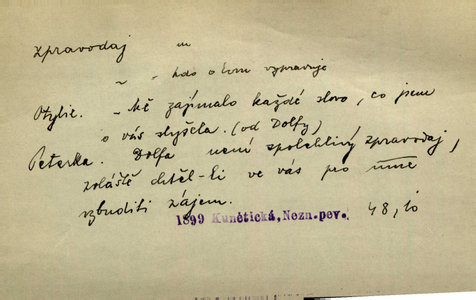 zpravodaj m
~ - kdo o tom vypravuje
Otylie. - Mě zajímalo každé slovo, co jsem
o vás slyšela. (od Dolfy)
Peterka. Dolfa není spolehlivý zpravodaj,
zvláště chtěl-li ve vás pro mne
vzbuditi zájem.
1899 Kunětická, Nezn.pev. 48, 10